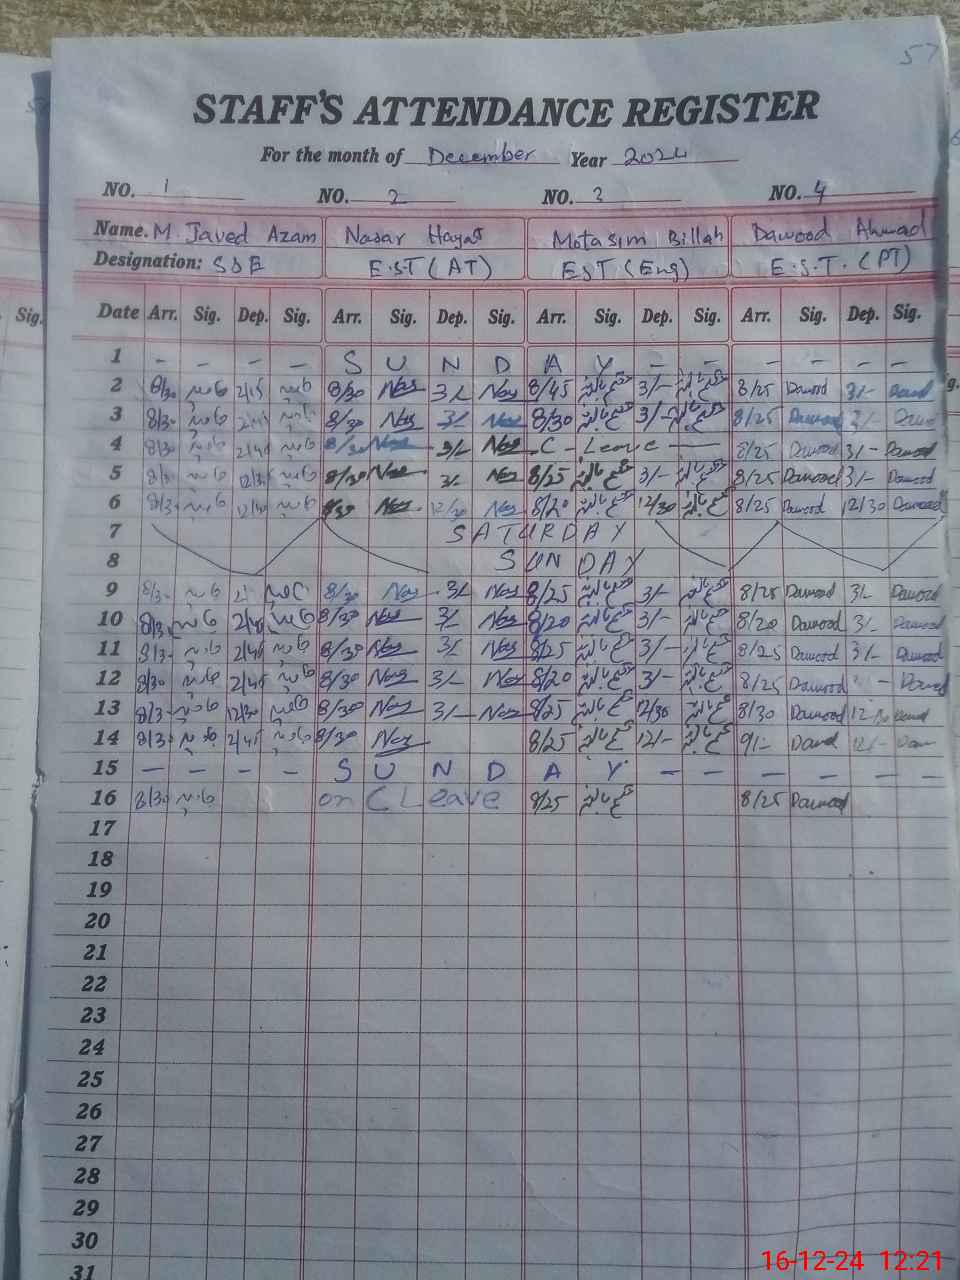 57
STAFF'S ATTENDANCE REGISTER
For the month of December Year 2024
NO. 1 NO. 2 NO. 3 NO. 4
Name. M. Javed Azam Nasar Hayat Motasim Billah Dawood Ahmad
Designation: SSE E.S.T (AT) EST (Eng) E.S.T. (PT)
Sig. Date Arr. Sig. Dep. Sig. Arr. Sig. Dep. Sig. Arr. Sig. Dep. Sig. Arr. Sig. Dep. Sig.
1 - - - - S U N D A Y - - - - - -
2 8/30 2/45 8/30 Nas 3/- Nas 8/45 3/- 8/25 Dawood 3/-
3 8/30 2/45 8/30 Nas 3/- Nas 8/30 3/- 8/25 Dawood 3/-
4 8/30 2/45 8/30 Nas 3/- Nas C - Leave 8/25 Dawood 3/- Dawood
5 8/30 8/30 Nas 3/- Nas 8/25 3/- 8/25 Dawood 3/- Dawood
6 8/30 8/30 Nas 12/30 Nas 8/20 12/30 8/25 Dawood 12/30 Dawood
7 SATURDAY
8 SUNDAY
9 8/30 8/30 Nas 3/- Nas 8/25 3/- 8/25 Dawood 3/- Dawood
10 8/30 2/45 8/30 Nas 3/- Nas 8/20 3/- 8/20 Dawood 3/- Dawood
11 8/30 2/45 8/30 Nas 3/- Nas 8/25 3/- 8/25 Dawood 3/- Dawood
12 8/30 2/45 8/30 Nas 3/- Nas 8/20 3/- 8/25 Dawood - Dawood
13 8/30 12/30 8/30 Nas 3/- Nas 8/25 12/30 8/30 Dawood 12/30
14 8/30 2/45 8/30 Nas 8/25 12/- 9/- 12/-
15 - - - - S U N D A Y - - - - - -
16 8/30 on C Leave 8/25 8/25 Dawood
17
18
19
20
21
22
23
24
25
26
27
28
29
30
31
16-12-24 12:21